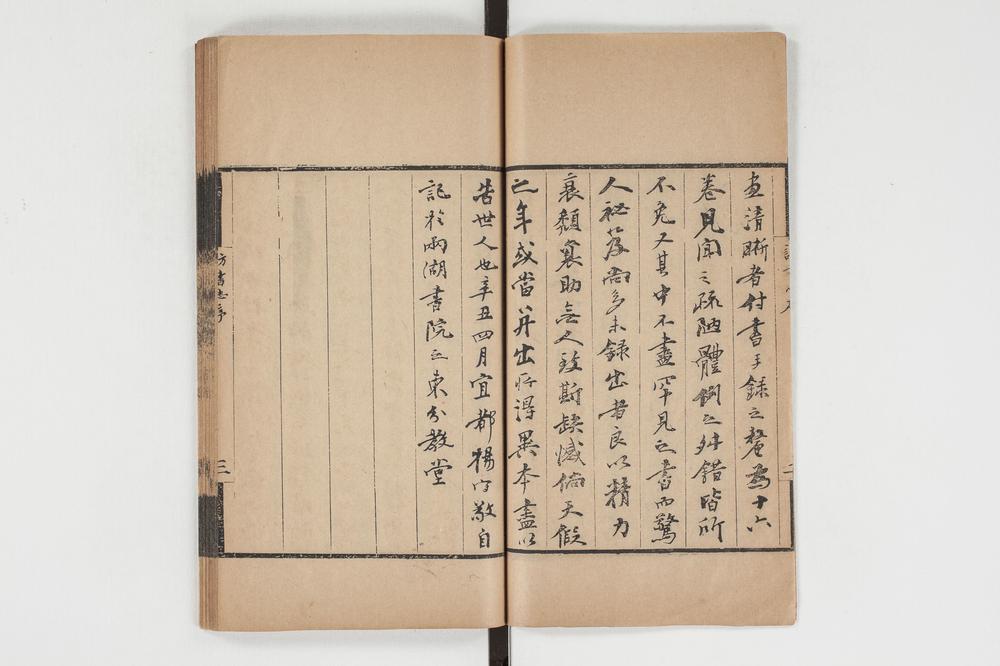 畫清晰者付書手錄之釐為十六
卷見聞之疏陋體例之舛錯皆所
不免又其中不盡罕見之書而驚
人祕笈尚多未錄出者良以精力
衰頹襄助無人致斯缺憾倘天假
之年或當并出所得異本盡以
告世人也辛丑四月宜都楊守敬自
記於兩湖書院之東分教堂
訪書志序
三